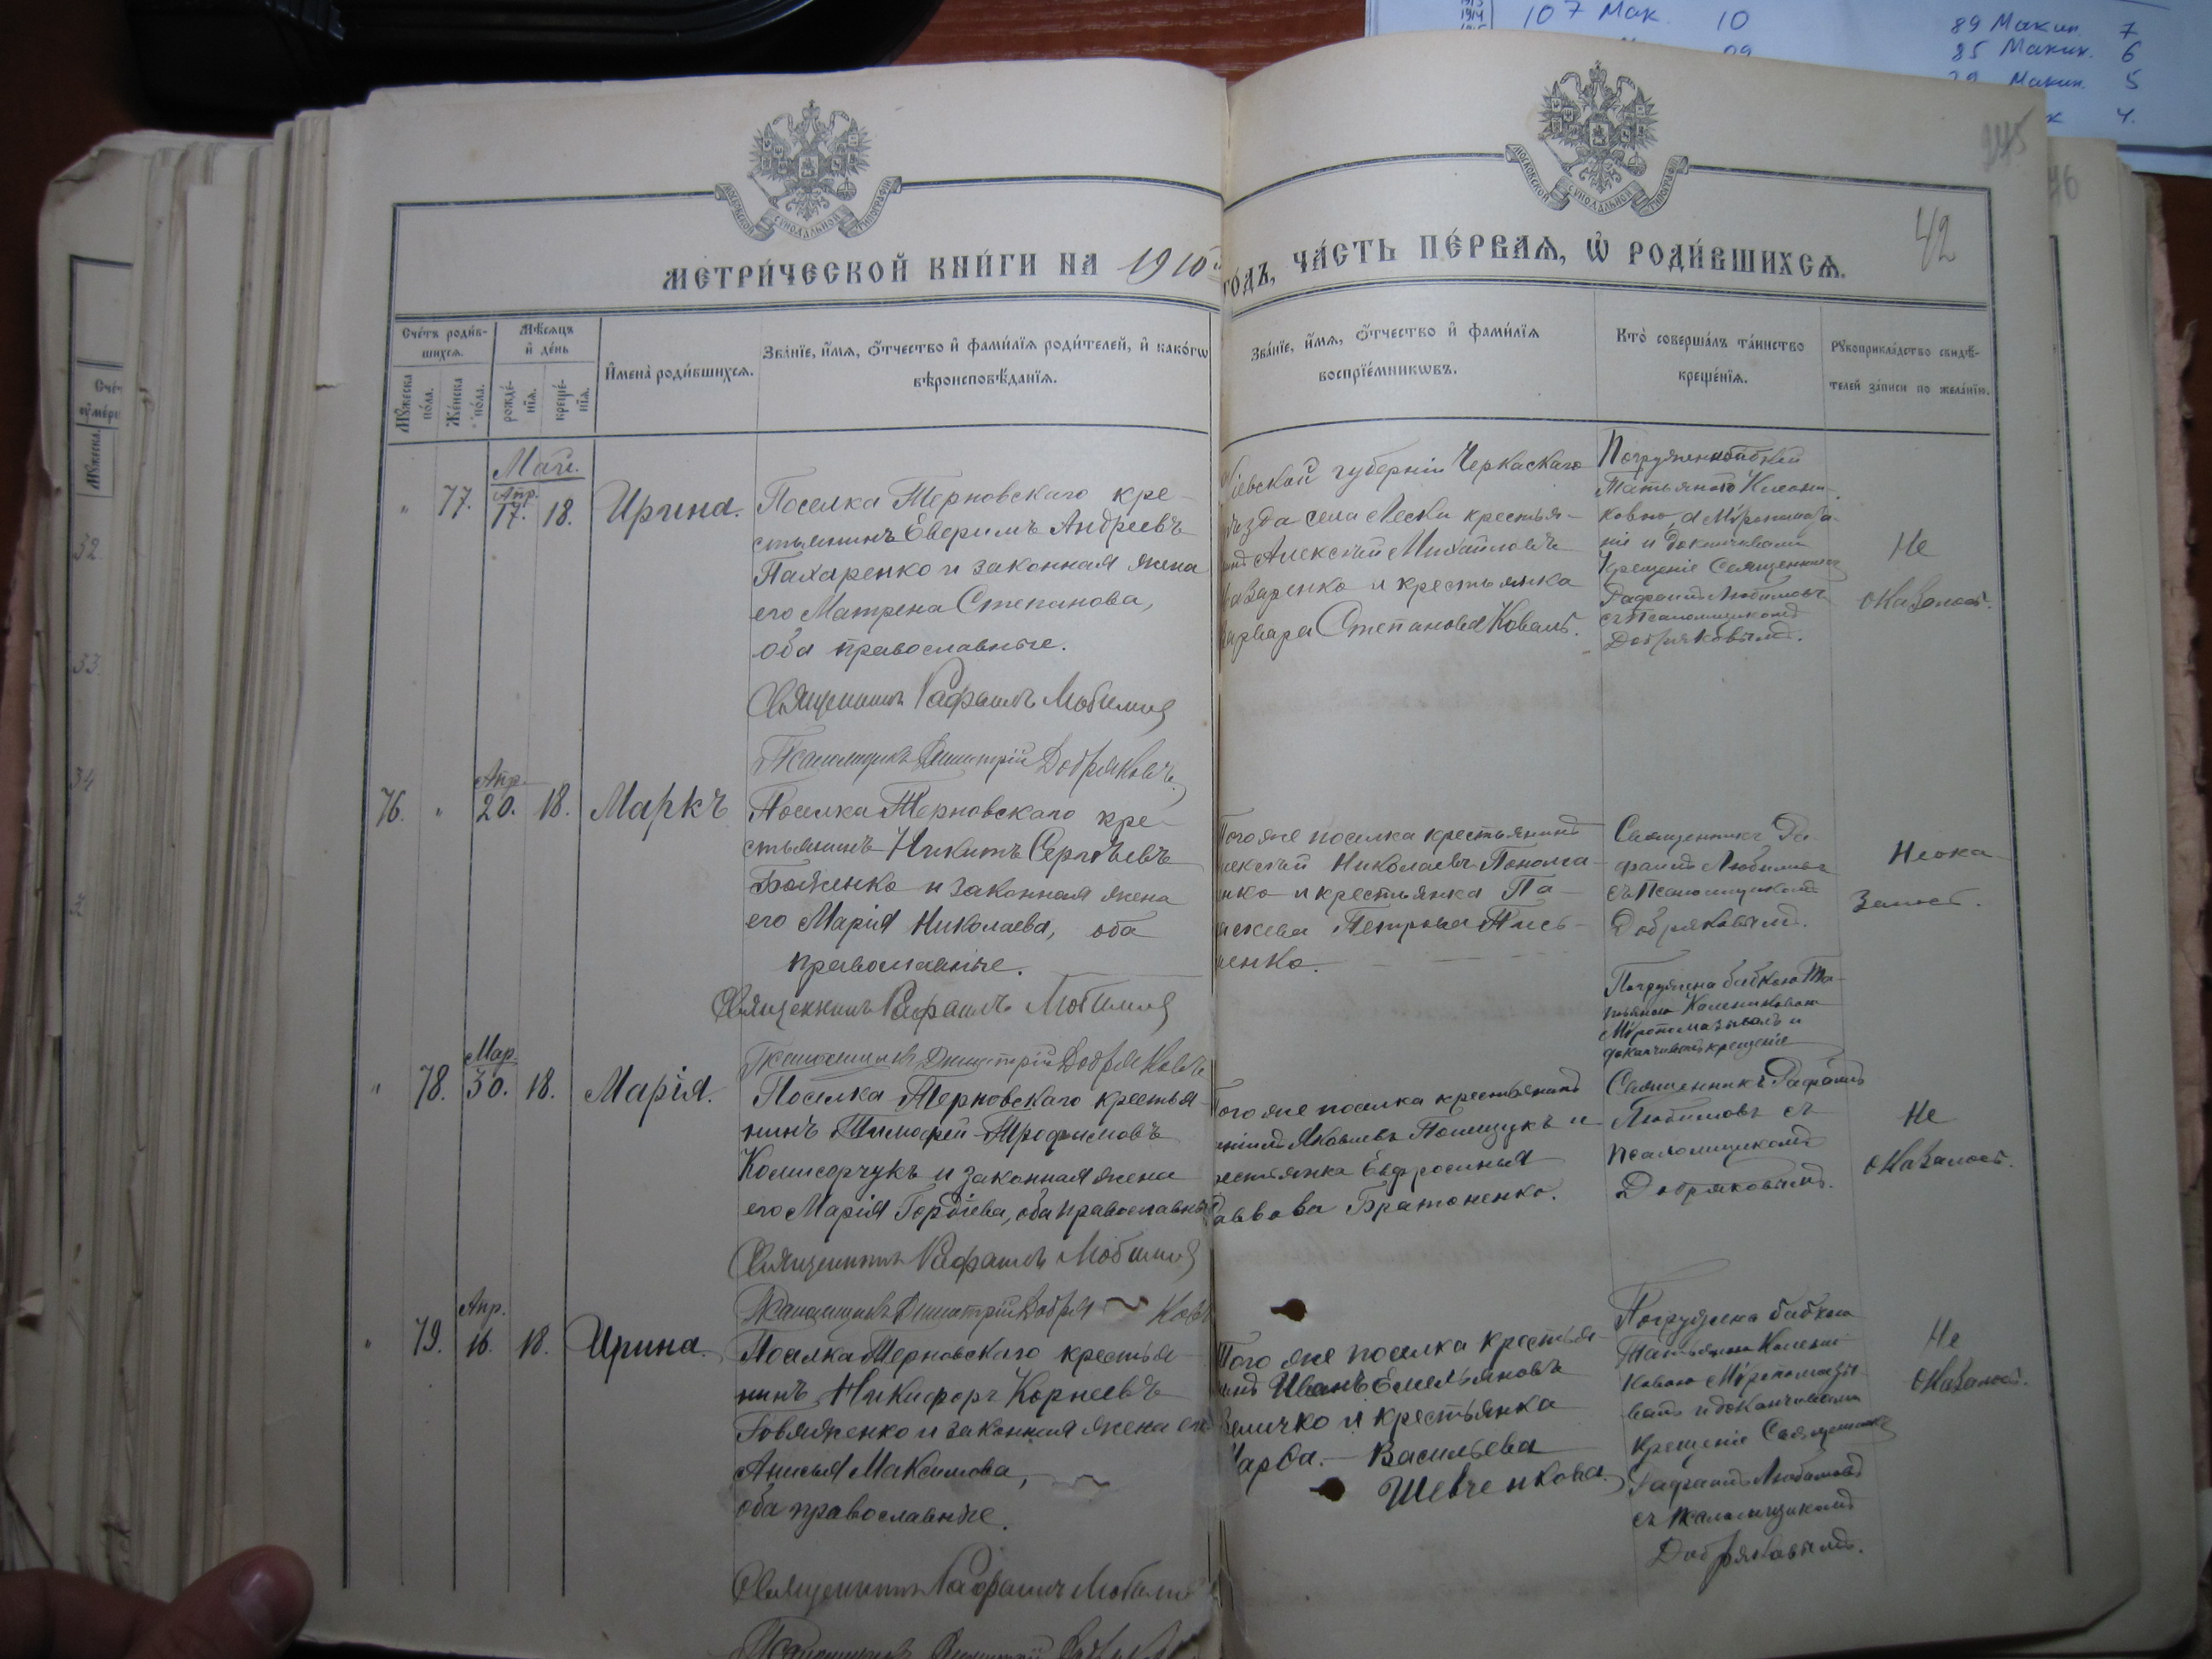 107 Мак. 10
89 Макин. 7
85 Макин. 6
Макин. 5
4.
245
42
МОСКОВСКОЙ СѴНОДАЛЬНОЙ ТИПОГРАФІИ
МОСКОВСКОЙ СѴНОДАЛЬНОЙ ТИПОГРАФІИ
МЕТРИ́ЧЕСКОЙ КНИ́ГИ НА 1910й
ГО́ДЪ, ЧА́СТЬ ПЕ́РВАѦ, Ѡ҆ РОДИ́ВШИХСѦ.
Сче́тъ роди́в-
шихсѧ.
Мꙋ́жеска по́ла.
Же́нска по́ла.
Мѣ́сѧцъ
и҆ де́нь
рожде́-
нїѧ.
креще́-
нїѧ.
И҆мена̀ роди́вшихсѧ.
Зва́нїе, и҆́мѧ, ѻ҆́тчество и҆ фами́лїѧ роди́телей, и҆ како́гѡ
вѣроисповѣ́данїѧ.
Зва́нїе, и҆́мѧ, ѻ҆́тчество и҆ фами́лїѧ
воспрїе́мникѡвъ.
Кто̀ соверша́лъ та́инство
креще́нїѧ.
Рꙋкоприкла́дство свидѣ́-
телей за́писи по жела́нїю.
Маій.
" 77. Апр. 17. 18. Ирина.
Поселка Терновскаго кре-
стьянинъ Еверимъ Андреевъ
Пахаренко и законная жена
его Матрена Степанова,
оба православные.
Священникъ Рафаилъ Любимов
Псаломщикъ Димитрій Добряковъ.
Кіевской губерніи Черкаскаго
уезда села Лески крестья-
Алексѣй Михайловъ
и крестьянка
Варвара Степанова Коваль.
Погружена бабкой
Татьяною
крещеніе Священникъ
Рафаилъ Любимовъ
съ Псаломщикомъ
Добряковымъ.
Не
оказалось.
76. " Апр. 20. 18. Маркъ
Поселка Терновскаго кре-
стьянинъ Никитъ Сергѣевъ
Боженко и законная жена
его Марія Николаева, оба
православные.
Священникъ Рафаилъ Любимов
Псаломщикъ Димитрій Добряковъ
Того же поселка крестьянинъ
Алексѣй Николаевъ Понома-
енко и крестьянка Па-
раскева Петрова Пись-
менко.
Священникъ Ра-
фаилъ Любимовъ
съ Псаломщикомъ
Добряковымъ.
Неока
залось.
" 78. Мар. 30. 18. Марія.
Поселка Терновскаго крестья-
нинъ Тимофей Трофимовъ
Комисарчукъ и законная жена
его Марія Гордіева, оба православные
Священникъ Рафаилъ Любимов
Псаломщикъ Димитрій Добря ~ ковъ
Того же поселка крестьянинъ
Яковлевъ Полищукъ и
крестьянка Евфросинья
Саввова Братоненко.
Погружена бабкою Та-
тьяною Калениковою
Мѵропомазывалъ и
доканчивалъ крещеніе
Священникъ Рафаилъ
Любимовъ съ
псаломщикомъ
Добряковымъ.
Не
оказалось.
" 79. Апр. 16. 18. Ирина.
Поселка Терновскаго крестья-
нинъ Никифоръ Корнеевъ
Говяженко и законная жена его
Анисья Максимова, ~
оба православные.
Священникъ Рафаилъ Любимов
Того же поселка крестья-
нинъ Иванъ Емельяновъ
Величко и крестьянка
Марѳа — Васильева
Шевченкова.
Погружена бабкою
Татьяною Калени
ковою Мѵропомазы
валъ и доканчивалъ
крещеніе Священникъ
Рафаилъ Любимовъ
съ псаломщикомъ
Добряковымъ.
Не
оказалось.